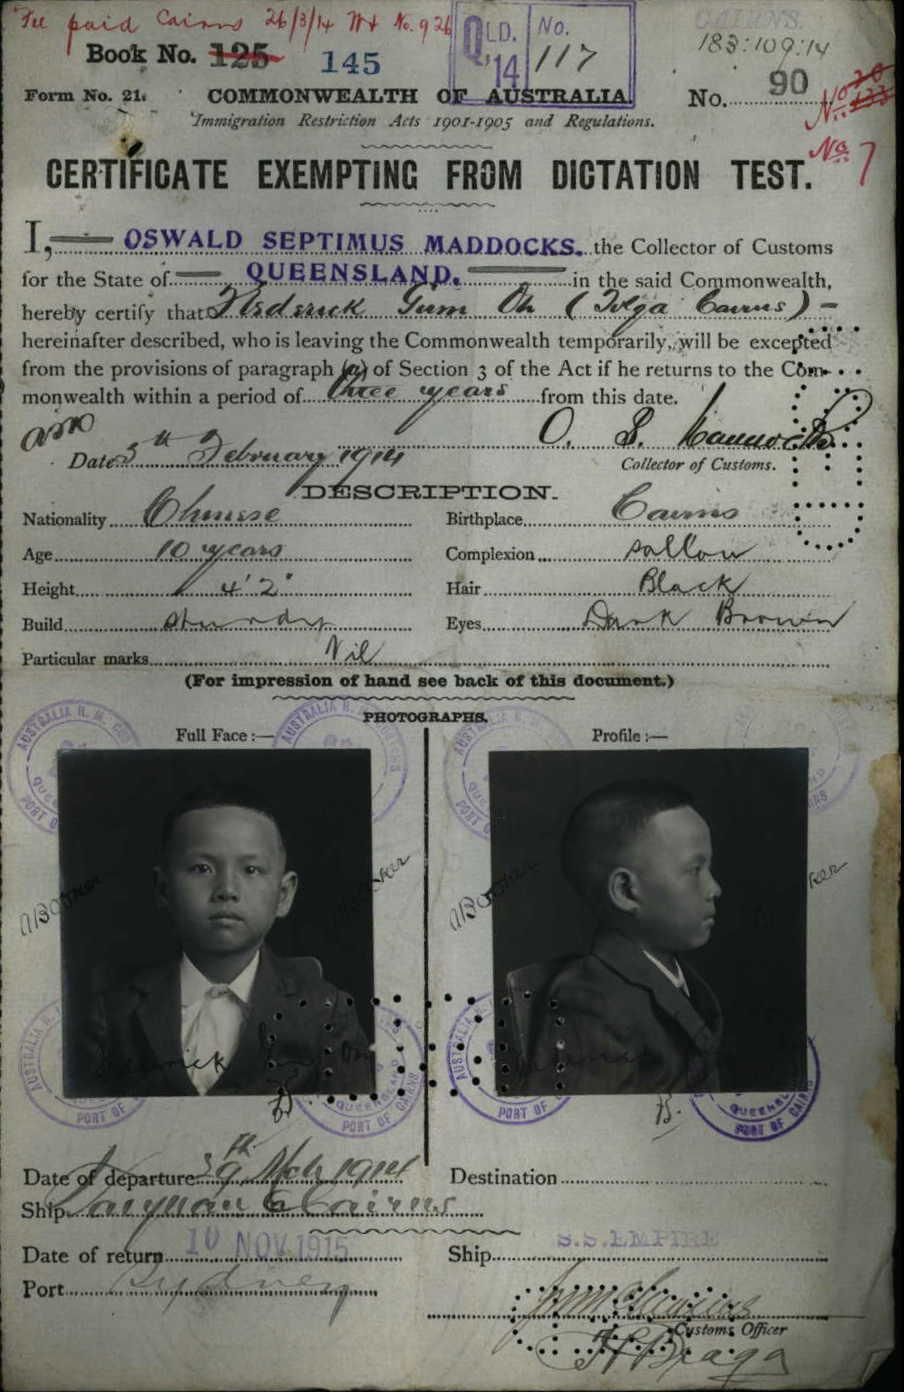 Fee paid Cairns 26/3/14 No. 926
Book No. 125 145
QLD. '14 No. 117
CAIRNS.
183:109:14
Form No. 21. COMMONWEALTH OF AUSTRALIA No. 90
Immigration Restriction Acts 1901-1905 and Regulations.
No. 7
CERTIFICATE EXEMPTING FROM DICTATION TEST.
I, OSWALD SEPTIMUS MADDOCKS. the Collector of Customs
for the State of QUEENSLAND. in the said Commonwealth,
hereby certify that Frederick Gum Oh (Tolga Cairns) -
hereinafter described, who is leaving the Commonwealth temporarily, will be excepted
from the provisions of paragraph (a) of Section 3 of the Act if he returns to the Com-
monwealth within a period of three years from this date.
O. S. Maddocks
Date 5th February 1914 Collector of Customs.
DESCRIPTION.
Nationality Chinese Birthplace Cairns
Age 10 years Complexion sallow
Height 4' 2" Hair Black
Build sturdy Eyes Dark Brown
Particular marks Nil
(For impression of hand see back of this document.)
PHOTOGRAPHS.
Full Face :— Profile :—
PORT OF CAIRNS
QUEENSLAND
Date of departure 29th Mch 1914 Destination
Ship Taiyuan Cairns
Date of return 10 NOV 1915 Ship S.S. EMPIRE
Port Sydney
Customs Officer